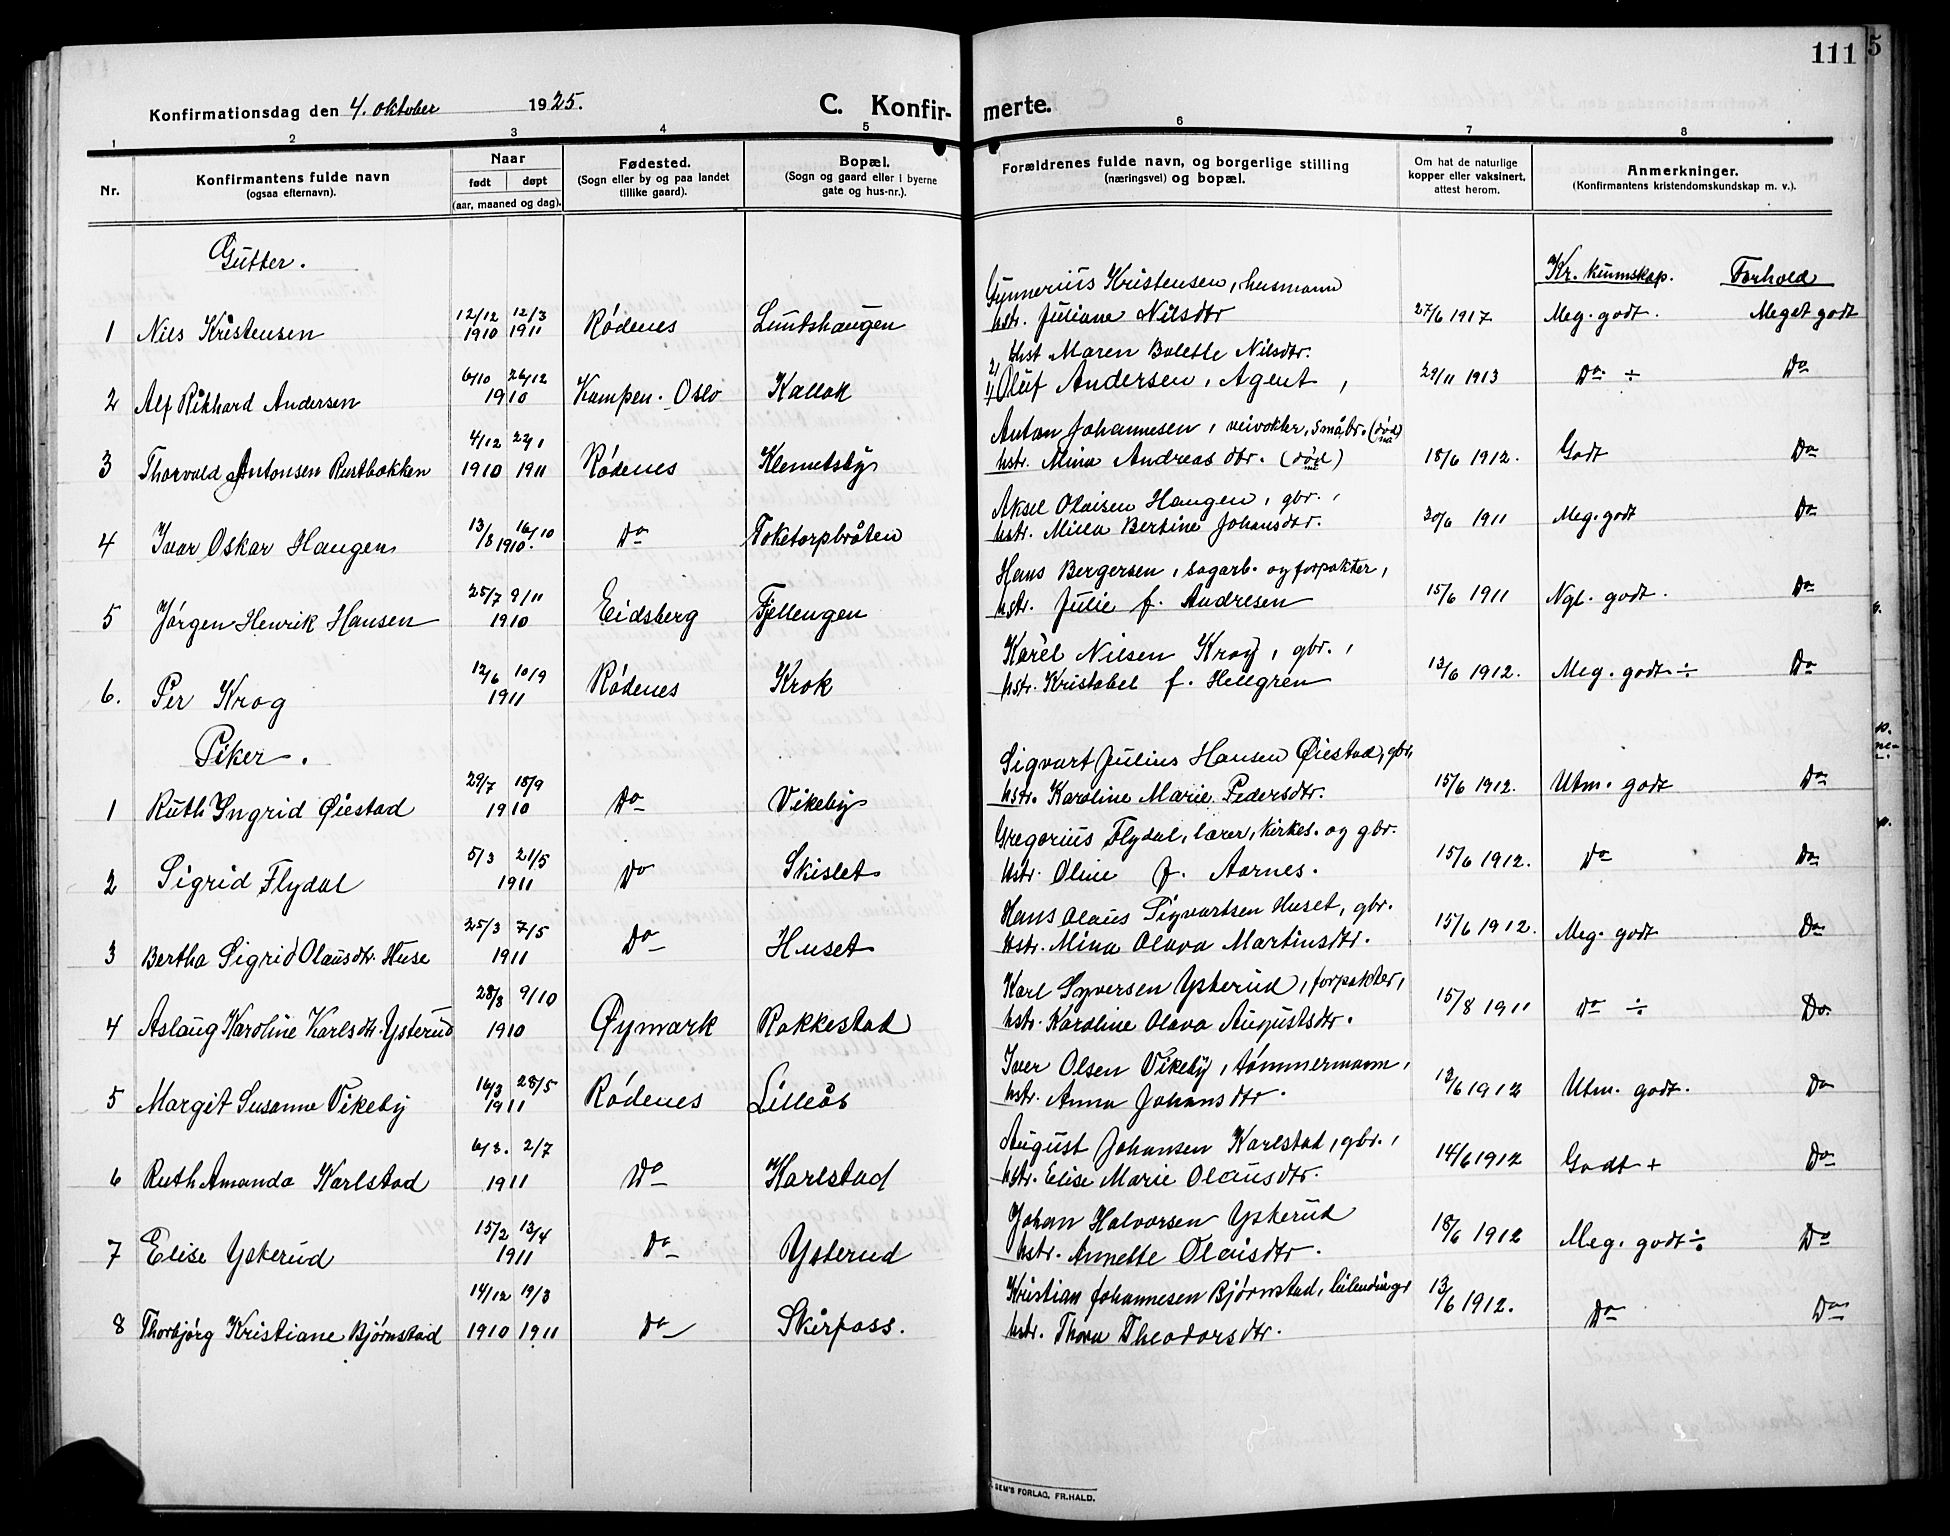 111
5
Konfirmationsdag den 4. oktober 1925.
C. Konfirmerte.
1 2 3 4 5 6 7 8
Nr.
Konfirmantens fulde navn (ogsaa efternavn).
Naar født døpt (aar, maaned og dag).
Fødested. (Sogn eller by og paa landet tillike gaard).
Bopæl. (Sogn og gaard eller i byerne gate og hus-nr.).
Forældrenes fulde navn, og borgerlige stilling (næringsvei) og bopæl.
Om hat de naturlige kopper eller vaksinert, attest herom.
Anmerkninger. (Konfirmantens kristendomskundskap m. v.).
Gutter.
Kr. kunnskap. Forhold
1 Nils Kristensen 12/12 1910 12/3 1911 Rødenes Lundshaugen Gunnerius Kristensen, husmann hstr. Juliane Nilsdtr 27/6 1917 Meg. godt. Meget godt
2 Alf Rikhard Andersen 6/10 26/12 1910 Kampen. Oslo Kallak 2) hst Maren Bolette Nilsdtr. 1) Oluf Andersen, Agent, 29/11 1913 Do ÷ Do
3 Thorvald Antonsen Rustbakken 4/12 1910 22/1 1911 Rødenes Klemetsby Anton Johannesen, veivokter, småbr. (død) hstr. Mina Andreasdtr. (død) 18/6 1912. Godt Do
4 Ivar Oskar Haugen 13/8 16/10 1910. Do Toketorpbråten Aksel Olaisen Haugen, gbr., hstr. Milla Bertine Johansdtr. 30/6 1911 Meg. godt Do
5 Jørgen Henrik Hansen 25/7 9/11 1910 Eidsberg Fjellengen Hans Bergersen, sagarb. og forpakter, hstr. Julie f. Andresen 15/6 1911 Ngl. godt. Do
6. Per Krog 12/6 10/9 1911 Rødenes Krok Karel Nilsen Krog, gbr., hstr. Kristabel f. Hellgren 13/6 1912. Meg. godt ÷ Do
Piker.
1 Ruth Ingrid Øiestad 29/7 18/9 1910 Do Vikeby Sigvart Julius Hansen Øiestad, gbr, hstr. Karoline Marie Pedersdtr. 15/6 1912. Utm. godt Do
2 Sigrid Flydal 5/3 21/5 1911 Do Skislet Gregorius Flydal, lærer, kirkes. og gbr. hstr. Oline f. Aarnes. 15/6 1912. Do Do
3 Bertha Sigrid Olausdtr. Huse 25/3 7/5 1911 Do Huset Hans Olaus Sigvartsen Huset, gbr. hstr. Mina Olava Martinsdtr. 15/6 1912. Meg. godt Do
4 Aslaug Karoline Karlsdtr. Ysterud 28/8 9/10 1910 Øymark Rakkestad Karl Syversen Ysterud, forpakter, hstr. Karoline Olava Augustsdtr. 15/8 1911 Do ÷ Do.
5 Margit Susanne Vikeby 16/3 28/5 1911 Rødenes Lilleås Iver Olsen Vikeby, tømmermann, hstr. Anna Johansdtr. 12/6 1912 Utm. godt. Do
6 Ruth Amanda Karlstad 6/3. 2/7 1911 Do Karlstad August Johansen Karlstad, gbr., hstr. Elise Marie Olausdtr. 14/6 1912 Godt + Do
7 Elise Ysterud 15/2 13/4 1911 Do Ysterud Johan Halvorsen Ysterud hstr. Annette Olaisdtr. 18/6 1912 Meg. godt ÷ Do
8 Thorbjørg Kristiane Bjørnstad 14/12 1910 19/3 1911 Do Skirpass. Kristian Johannesen Bjørnstad, leilendinger hstr. Thora Theodorsdtr. 13/6 1912. Do Do
SEM'S FORLAG, FR.HALD.